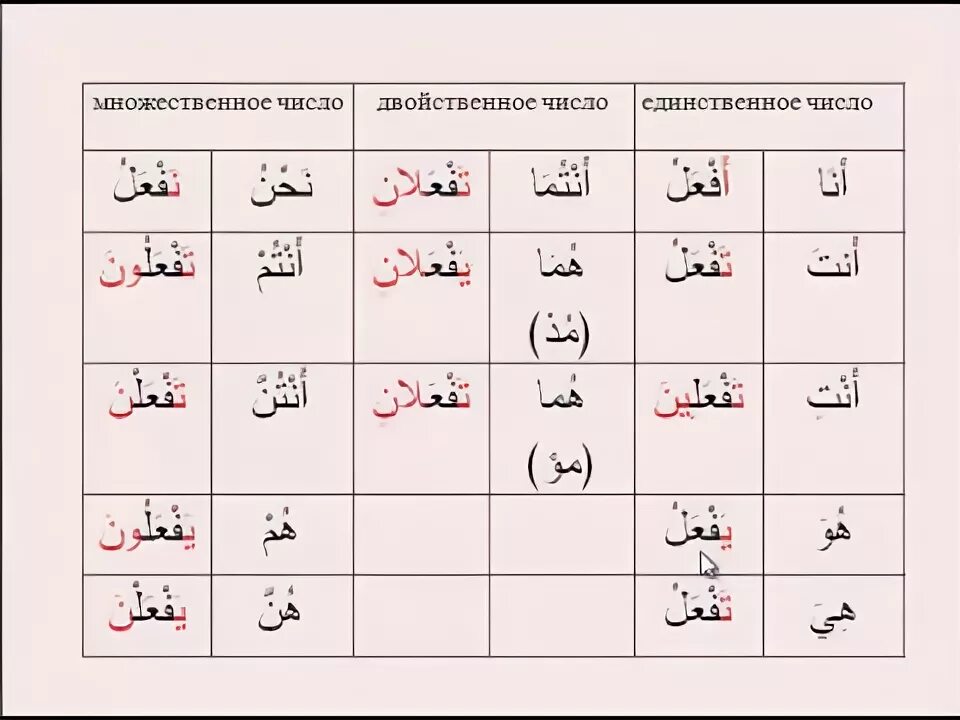 множественное число двойственное число единственное число
أَنَا أَفْعَلُ أَنْتُمَا تَفْعَلانِ نَحْنُ نَفْعَلُ
أَنتَ تَفْعَلُ هُمَا يَفْعَلانِ أَنْتُمْ تَفْعَلُونَ
(مُذْ)
أَنْتِ تَفْعَلِينَ هُما تَفْعَلانِ أَنْتُنَّ تَفْعَلْنَ
(مؤْ)
هُوَ يَفْعَلُ هُمْ يَفْعَلُونَ
هِيَ تَفْعَلُ هُنَّ يَفْعَلْنَ